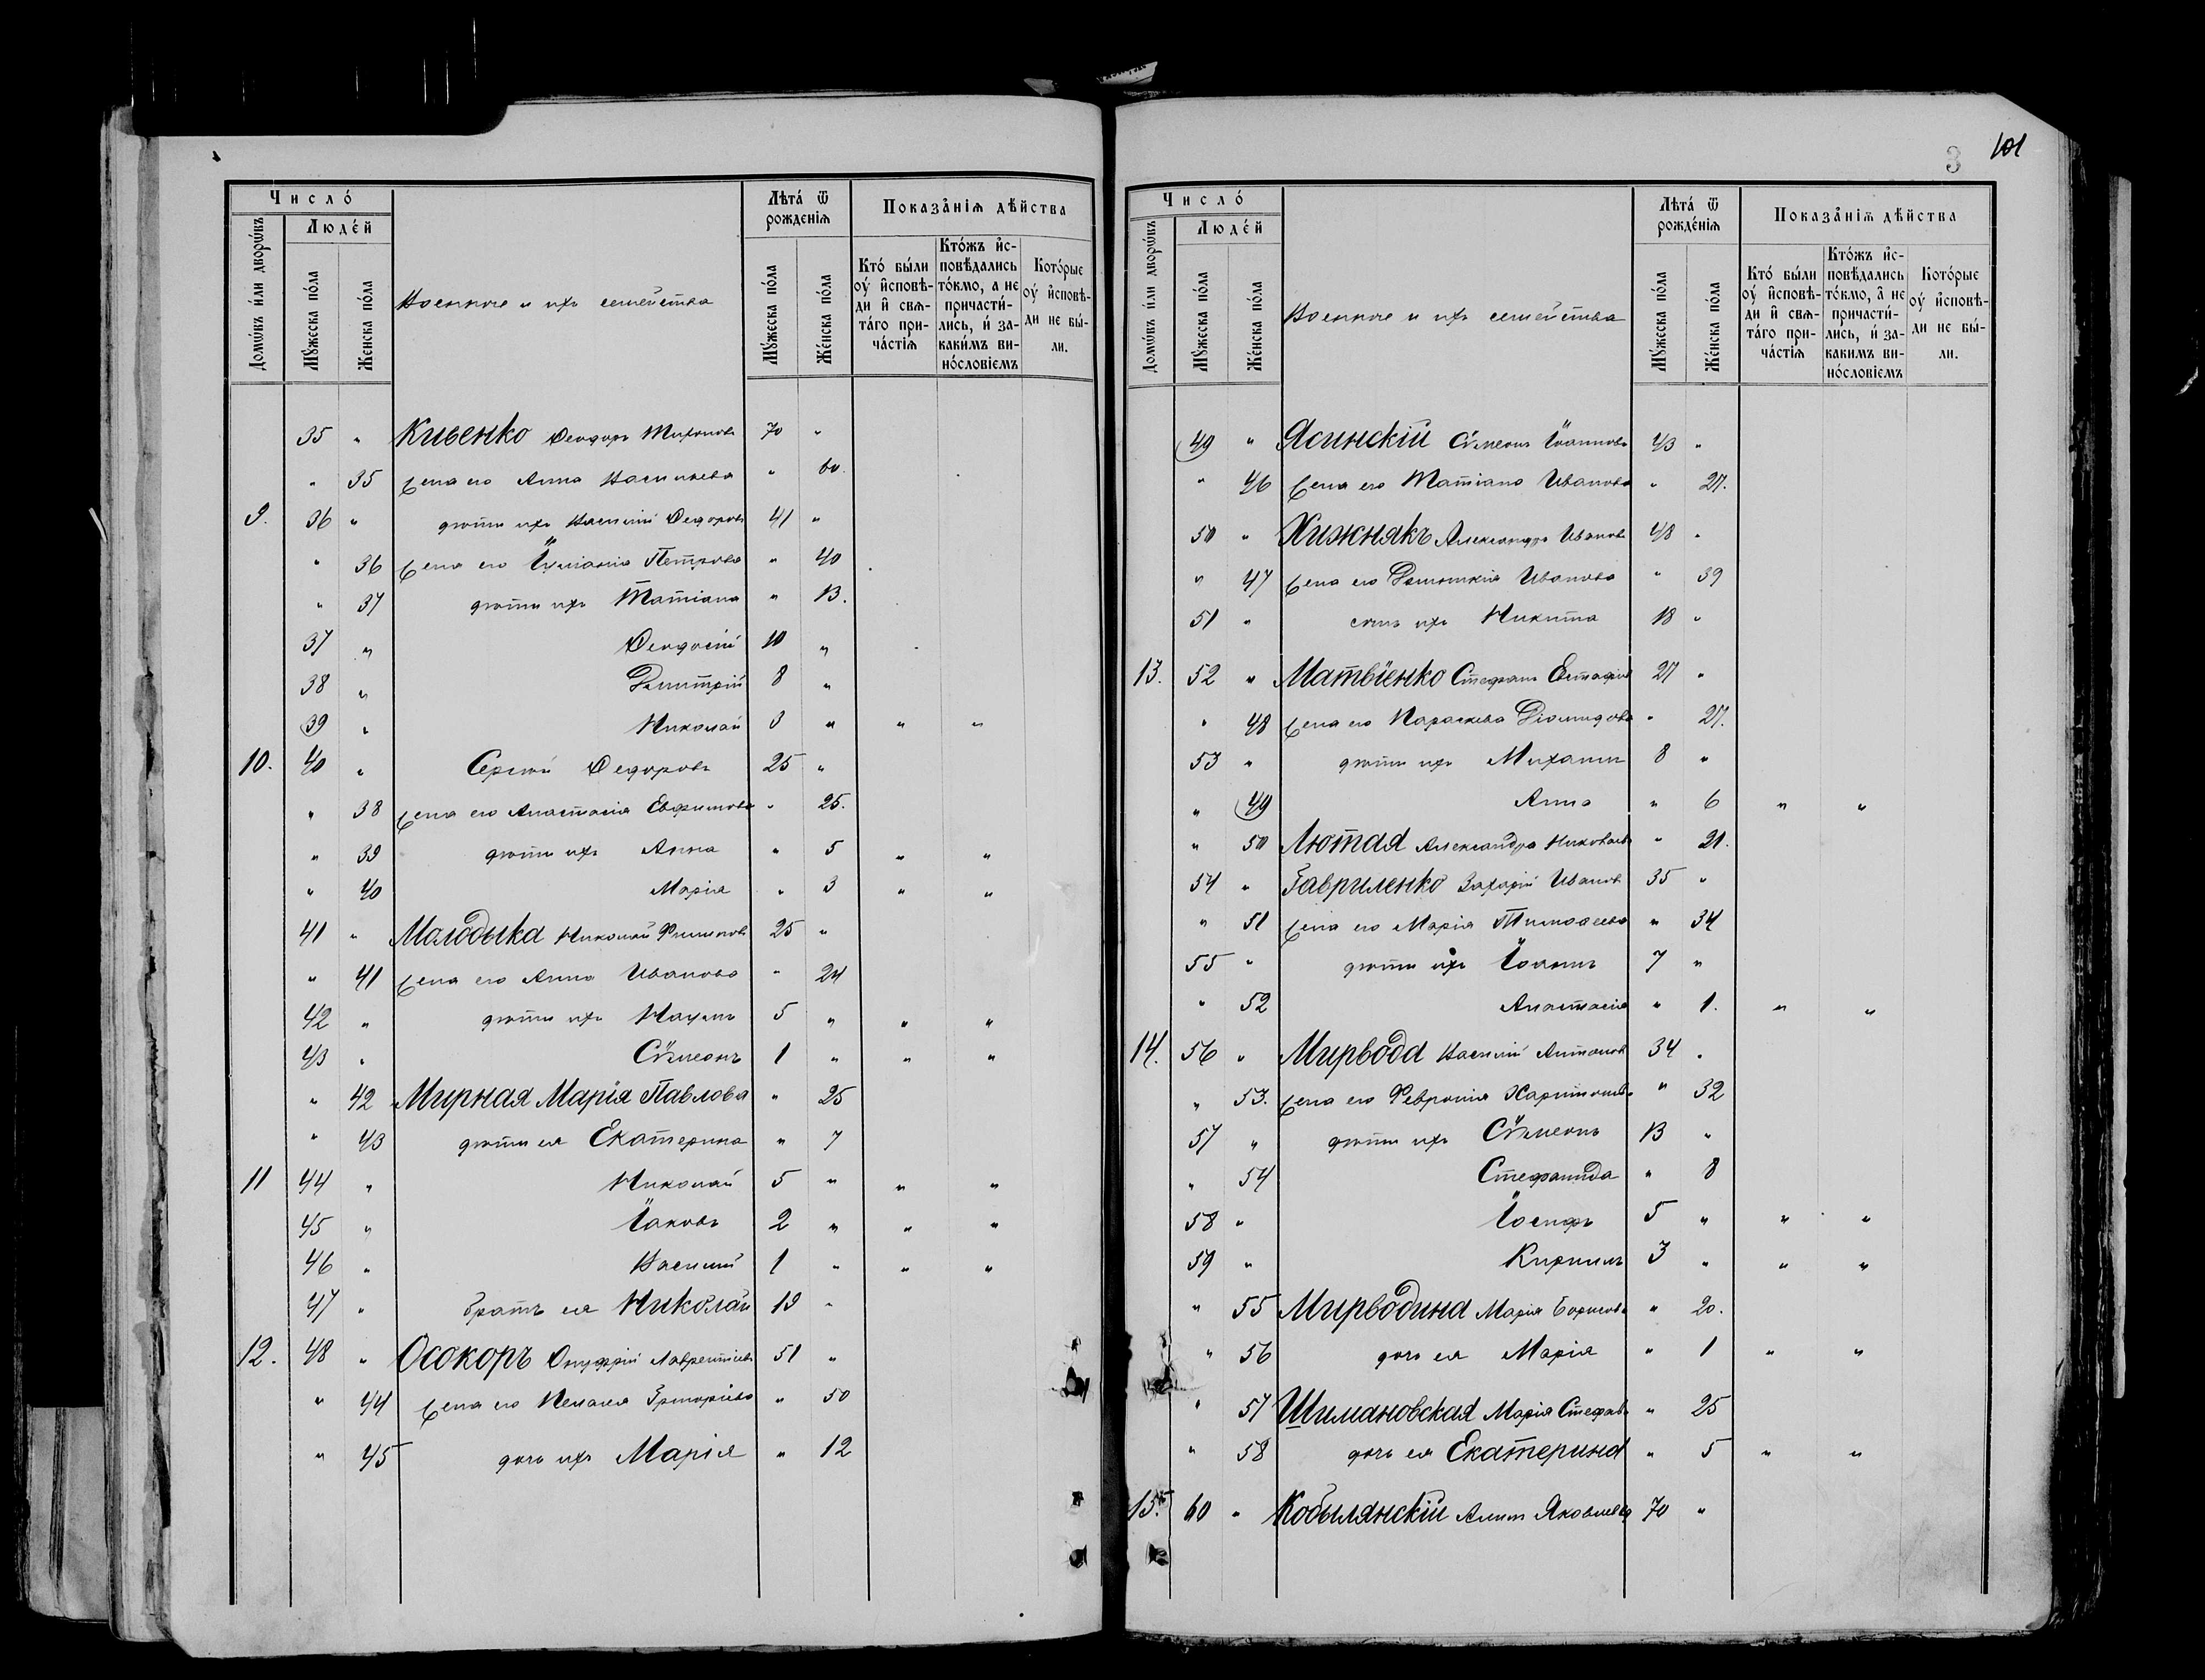 3 101
Число́
Люде́й
Домѡ́въ и҆ли дворѡ́въ
Мꙋ́жеска по́ла
Же́нска по́ла
Военные и ихъ семейства
Лѣта́ ѿ рожденїѧ
Мꙋ́жеска по́ла
Же́нска по́ла
Показа̑нїѧ дѣ́йства
Кто́ бы́ли оу҆ и҆сповѣди и҆ свѧта́гѡ прича́стїѧ
Кто́жъ и҆сповѣдались то́кмо, а не причасти́лись, и҆ за каки́мъ вино́словїемъ
Кото́рые оу҆ и҆сповѣди не бы́ли.
35 " Кивенко Ѳеодоръ Тихоновъ 70 "
" 35 жена его Анна Васильева " 60.
9. 36 " дѣти ихъ Василій Ѳедоровъ 41 "
" 36 жена его Іуліанія Петрова " 40
" 37 дѣти ихъ Татіана " 13.
37 " Ѳеодосій 10 "
38 " Димитрій 8 "
39 " Николай 3 " " "
10. 40 " Сергій Ѳедоровъ 25 "
" 38 жена его Анастасія Евфимова " 25.
" 39 дѣти ихъ Анна " 5 " "
" 40 Марія " 3 " "
41 " Молодыка Николай Филиповъ 25 "
" 41 жена его Анна Иванова " 24
42 " дѣти ихъ Наумъ 5 " " "
43 " Сѷмеонъ 1 " " "
" 42 Мирная Марія Павлова " 25
" 43 дѣти ея Екатерина " 7
11 44 " Николай 5 " " "
45 " Іаковъ 2 " " "
46 " Василій 1 " " "
47 " братъ ея Николай 19 "
12. 48 " Осокоръ Онуфрій Лаврентіевъ 51 "
" 44 жена его Пелагея Григоріева " 50
" 45 дочь ихъ Марія " 12
Число́
Люде́й
Домѡ́въ и҆ли дворѡ́въ
Мꙋ́жеска по́ла
Же́нска по́ла
Военные и ихъ семейства
Лѣта́ ѿ рожде́нїѧ
Мꙋ́жеска по́ла
Же́нска по́ла
Показа̑нїѧ дѣ́йства
Кто́ бы́ли оу҆ и҆сповѣди и҆ свѧта́гѡ прича́стїѧ
Кто́жъ и҆сповѣдались то́кмо, а҆ не причасти́лись, и҆ за каки́мъ вино́словїемъ
Кото́рые оу҆ и҆сповѣди не бы́ли.
49 " Ясинскій Сѷмеонъ Іоанновъ 43 "
" 46 жена его Татіана Иванова " 27.
50 " Хижнякъ Александръ Ивановъ 48 "
" 47 жена его Иванова " 39
51 " сынъ ихъ Никита 18 "
13. 52 " Матвіенко Стефанъ Евстафіевъ 27 "
" 48 жена его Параскева Діомидова " 27.
53 " дѣти ихъ Михаилъ 8 "
" 49 Анна " 6 " "
" 50 Лютая Александра Николаева " 21.
54 " Гавриленко Захарій Ивановъ 35 "
" 51 жена его Марія Тимоѳеева " 34
55 " дѣти ихъ Іоаннъ 7 "
" 52 Анастасія " 1. " "
14. 56 " Мирвода Василій Антоновъ 34 "
" 53. жена его Февронія Харитонова " 32
57 " дѣти ихъ Сѷмеонъ 13 "
" 54 Стефанида " 8
58 " Іосифъ 5 " " "
59 " Кириллъ 3 " " "
" 55 Мирводина Марія Борисова " 20.
" 56 дочь ея Марія " 1 " "
" 57 Шимановская Марія Стефан. " 25
" 58 дочь ея Екатерина " 5 " "
15. 60 " Кобылянскій Яковлевъ 70 "